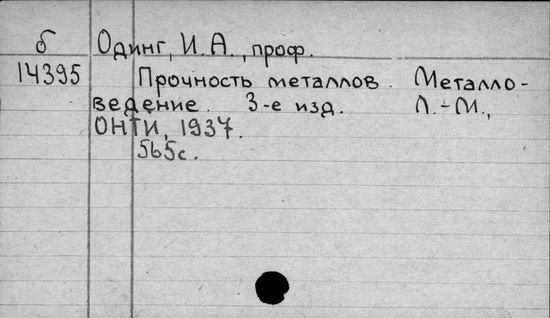 б Одинг, И.А., проф.
14395 Прочность металлов. Металло-
ведение. 3-е изд. Л.-М.,
ОНТИ, 1937.
565с.